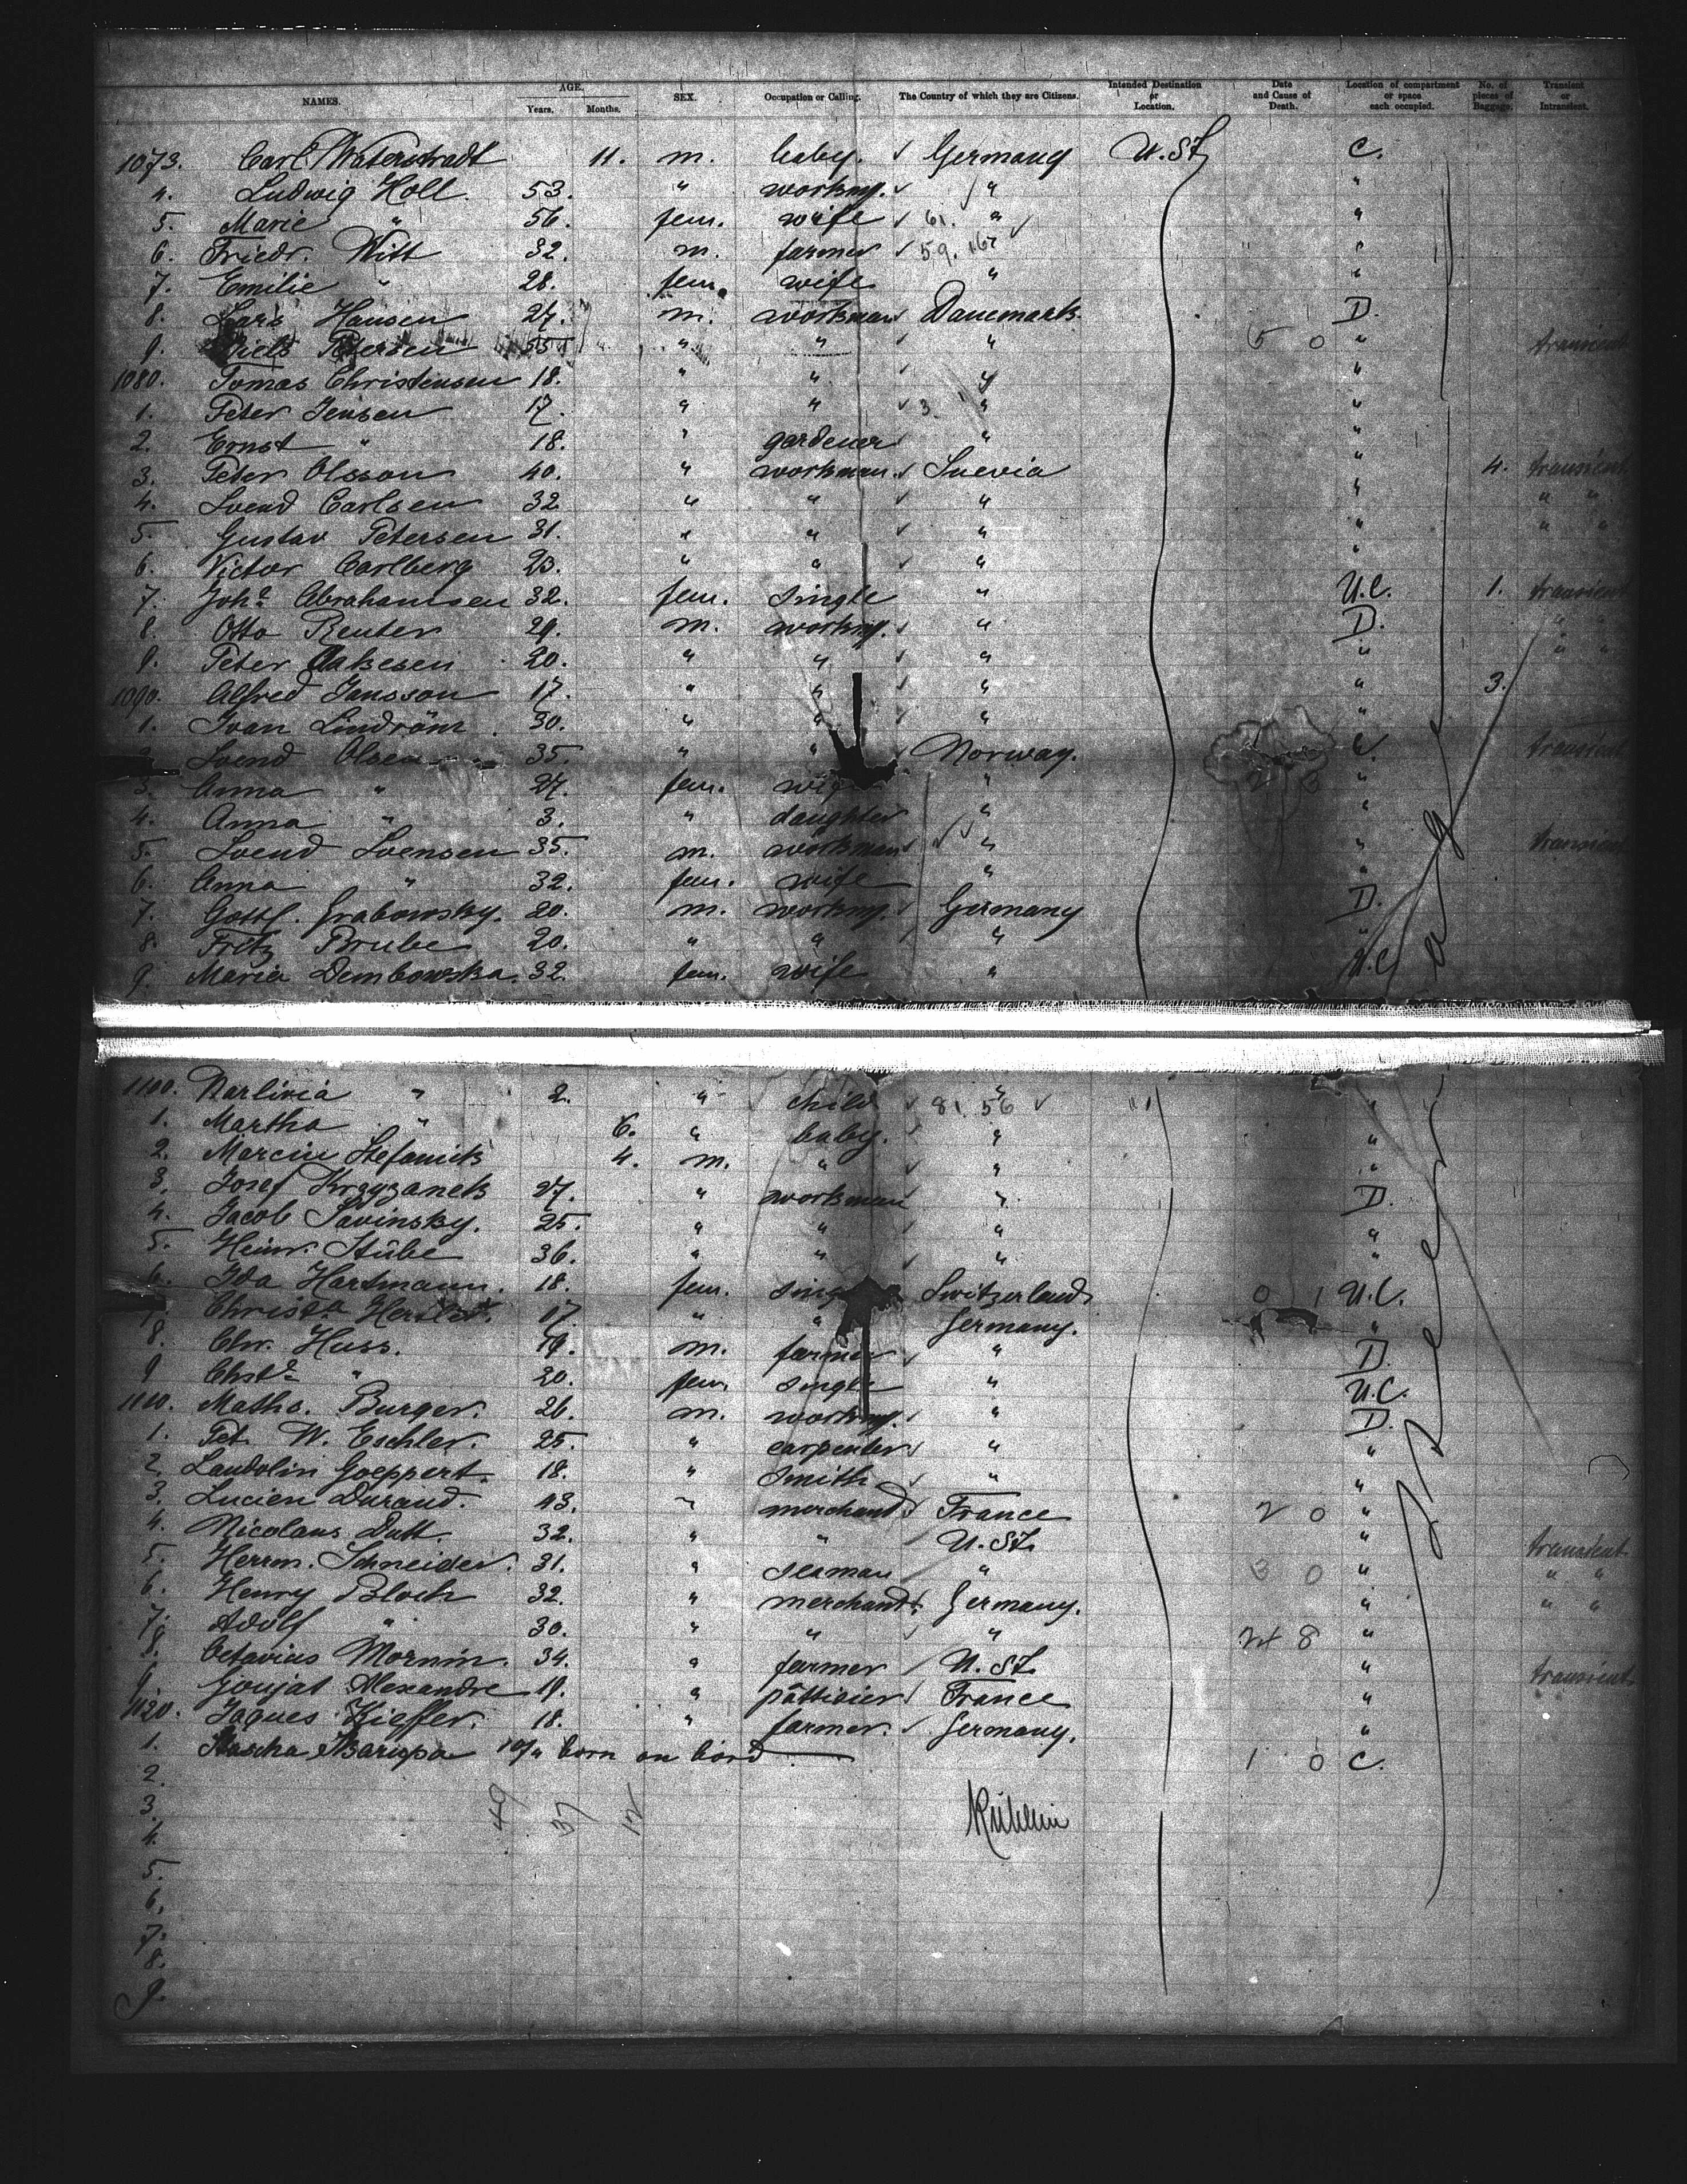 NAMES. AGE. Years. Months. SEX. Occupation or Calling. The Country of which they are Citizens. Intended Destination or Location. Date and Cause of Death. Location of compartment or space each occupied. No. of pieces of Baggage. Transient or Intransient.
1073. Carl Waterstradt 11. m. baby. Germany U. St. C.
4. Ludwig Holl. 53. " workmg. " "
5. Marie " 56. fem. wife 61. " "
6. Friedr. Witt 32. m. farmer 59. 167 "
7. Emilie " 28. fem. wife " "
8. Lars Hansen 24. m. workman Danemark. D.
9. Niels Petersen 55 " " " 5 0 " transient
1080. Tomas Christensen 18. " " " "
1. Peter Jensen 17. " " 3. " "
2. Ernst " 18. " gardener " "
3. Peter Olsson 40. " workman Suevia " 4. transient
4. Svend Carlsen 32 " " " " " "
5. Gustav Petersen 31. " " " " " "
6. Victor Carlberg 23. " " " "
7. Joh.a Abrahamsen 32. fem. single " U.C. 1. transient
8. Otto Reuter 29. m. workmg. " D. " "
9. Peter Aakesen 20. " " " " " "
1090. Alfred Jansson 17. " " " " 3.
1. Ivan Lindröm. 30. " " " "
2. Svend Olsen 35. " " Norway. C. transient
3. Anna " 27. fem. wife " "
4. Anna " 3. " daughter " "
5. Svend Svensen 35. m. workman " " transient
6. Anna " 32. fem. wife " "
7. Gottf. Grabowsky. 20. m. workmg. Germany D.
8. Fritz Brube 20. " " " "
9. Maria Dembowska. 32. fem. wife " U.C.
1100. " 2. " child 81. 56 " "
1. Martha " 6. " baby. " "
2. Marcin Stefanik 4. m. " " "
3. Josef Krzyzanek 27. " workman " D.
4. Jacob Savinsky. 25. " " " "
5. Heinr. Stübe 36. " " " "
6. Ida Hartmann. 18. fem. single Switzerland 0 1 U.C.
7. 17 " " Germany. "
8. Chr. Huss. 19. m. farmer " D.
9 Chst.a " 20. fem. single " U.C.
1110. Maths. Burger. 26. m. workmg. " D.
1. Pet. W. Eschler. 25. " carpenter " "
2. Landolin Goeppert. 18. " Smith " "
3. Lucien Durand. 43. " merchand France 2 0 "
4. Nicolaus Dutt. 32. " " U. St. " transient
5. Herrm. Schneider. 31. " seaman " 3 0 " " "
6. Henry Bloch 32. " merchand. Germany. " " "
7. Adolf " 30. " " " 24 8 "
8. Octavius Mornin. 34. " farmer U. St. " transient
9. Goujat Alexandre 19. " pâttisier France "
1120. Jaques Kieffer. 18. " farmer. Germany. "
1. born on bord 1 0 C.
2.
3.
4.
5.
6.
7.
8.
9.